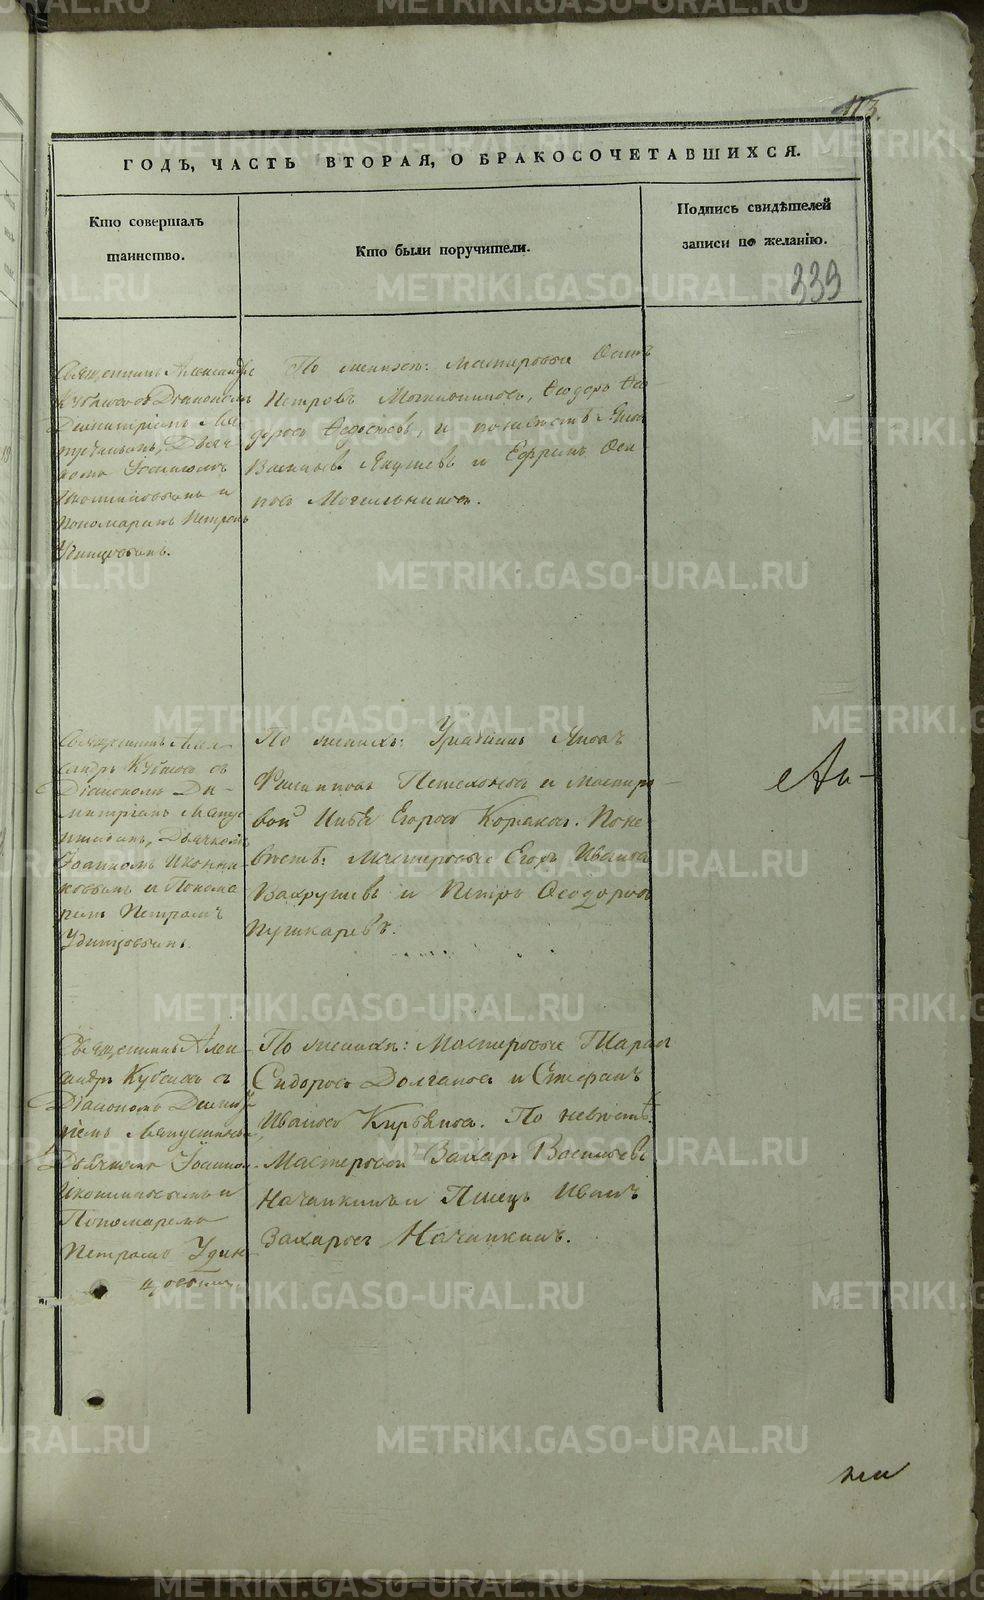 173.
ГОДЪ, ЧАСТЬ ВТОРАЯ, О БРАКОСОЧЕТАВШИХСЯ.
Кто совершалъ
таинство.
Кто были поручители.
Подпись свидѣтелей
записи по желанію.
339
Священникъ Александръ
Кубасовъ съ Діакономъ
Димитріемъ
Дьяч-
комъ Іоанномъ
Иконниковымъ и
Пономаремъ Петромъ
Удинцовымъ.
По женихѣ: Мастеровые Осипъ
Петровъ Могильниковъ, Ѳедоръ Ѳе-
доровъ Ѳедосѣевъ, и по невѣстѣ Яковъ
Васильевъ Якушевъ и Ефремъ Оси
повъ Могильниковъ.
Священникъ Алек-
сандръ Кубасовъ съ
Діакономъ Ди-
митріемъ
Дьячкомъ
Іоанномъ Иконни
ковымъ и Понома
ремъ Петромъ
Удинцовымъ.
По женихѣ: Унтеръ Яковъ
Филипповъ и Мастеро-
вой Егоровъ Коряковъ. По не-
вѣстѣ: Мастеровые Егоръ Ивановъ
Вахрушевъ и Петръ Ѳеодоровъ
Пушкаревъ.
Священникъ Алек-
сандръ Кубасовъ съ
Діакономъ Димит
ріемъ
Дьячкомъ Іоанномъ
Иконниковымъ и
Пономаремъ
Петромъ Удин-
цовымъ.
По женихѣ: Мастеровые Тарасъ
Сидоровъ Долгановъ и Стефанъ
Ивановъ По невѣстѣ:
Мастеровой Захаръ Васильевъ
Начапкинъ и Писецъ Иванъ
Захаровъ Начапкинъ.
METRIKI.GASO-URAL.RU